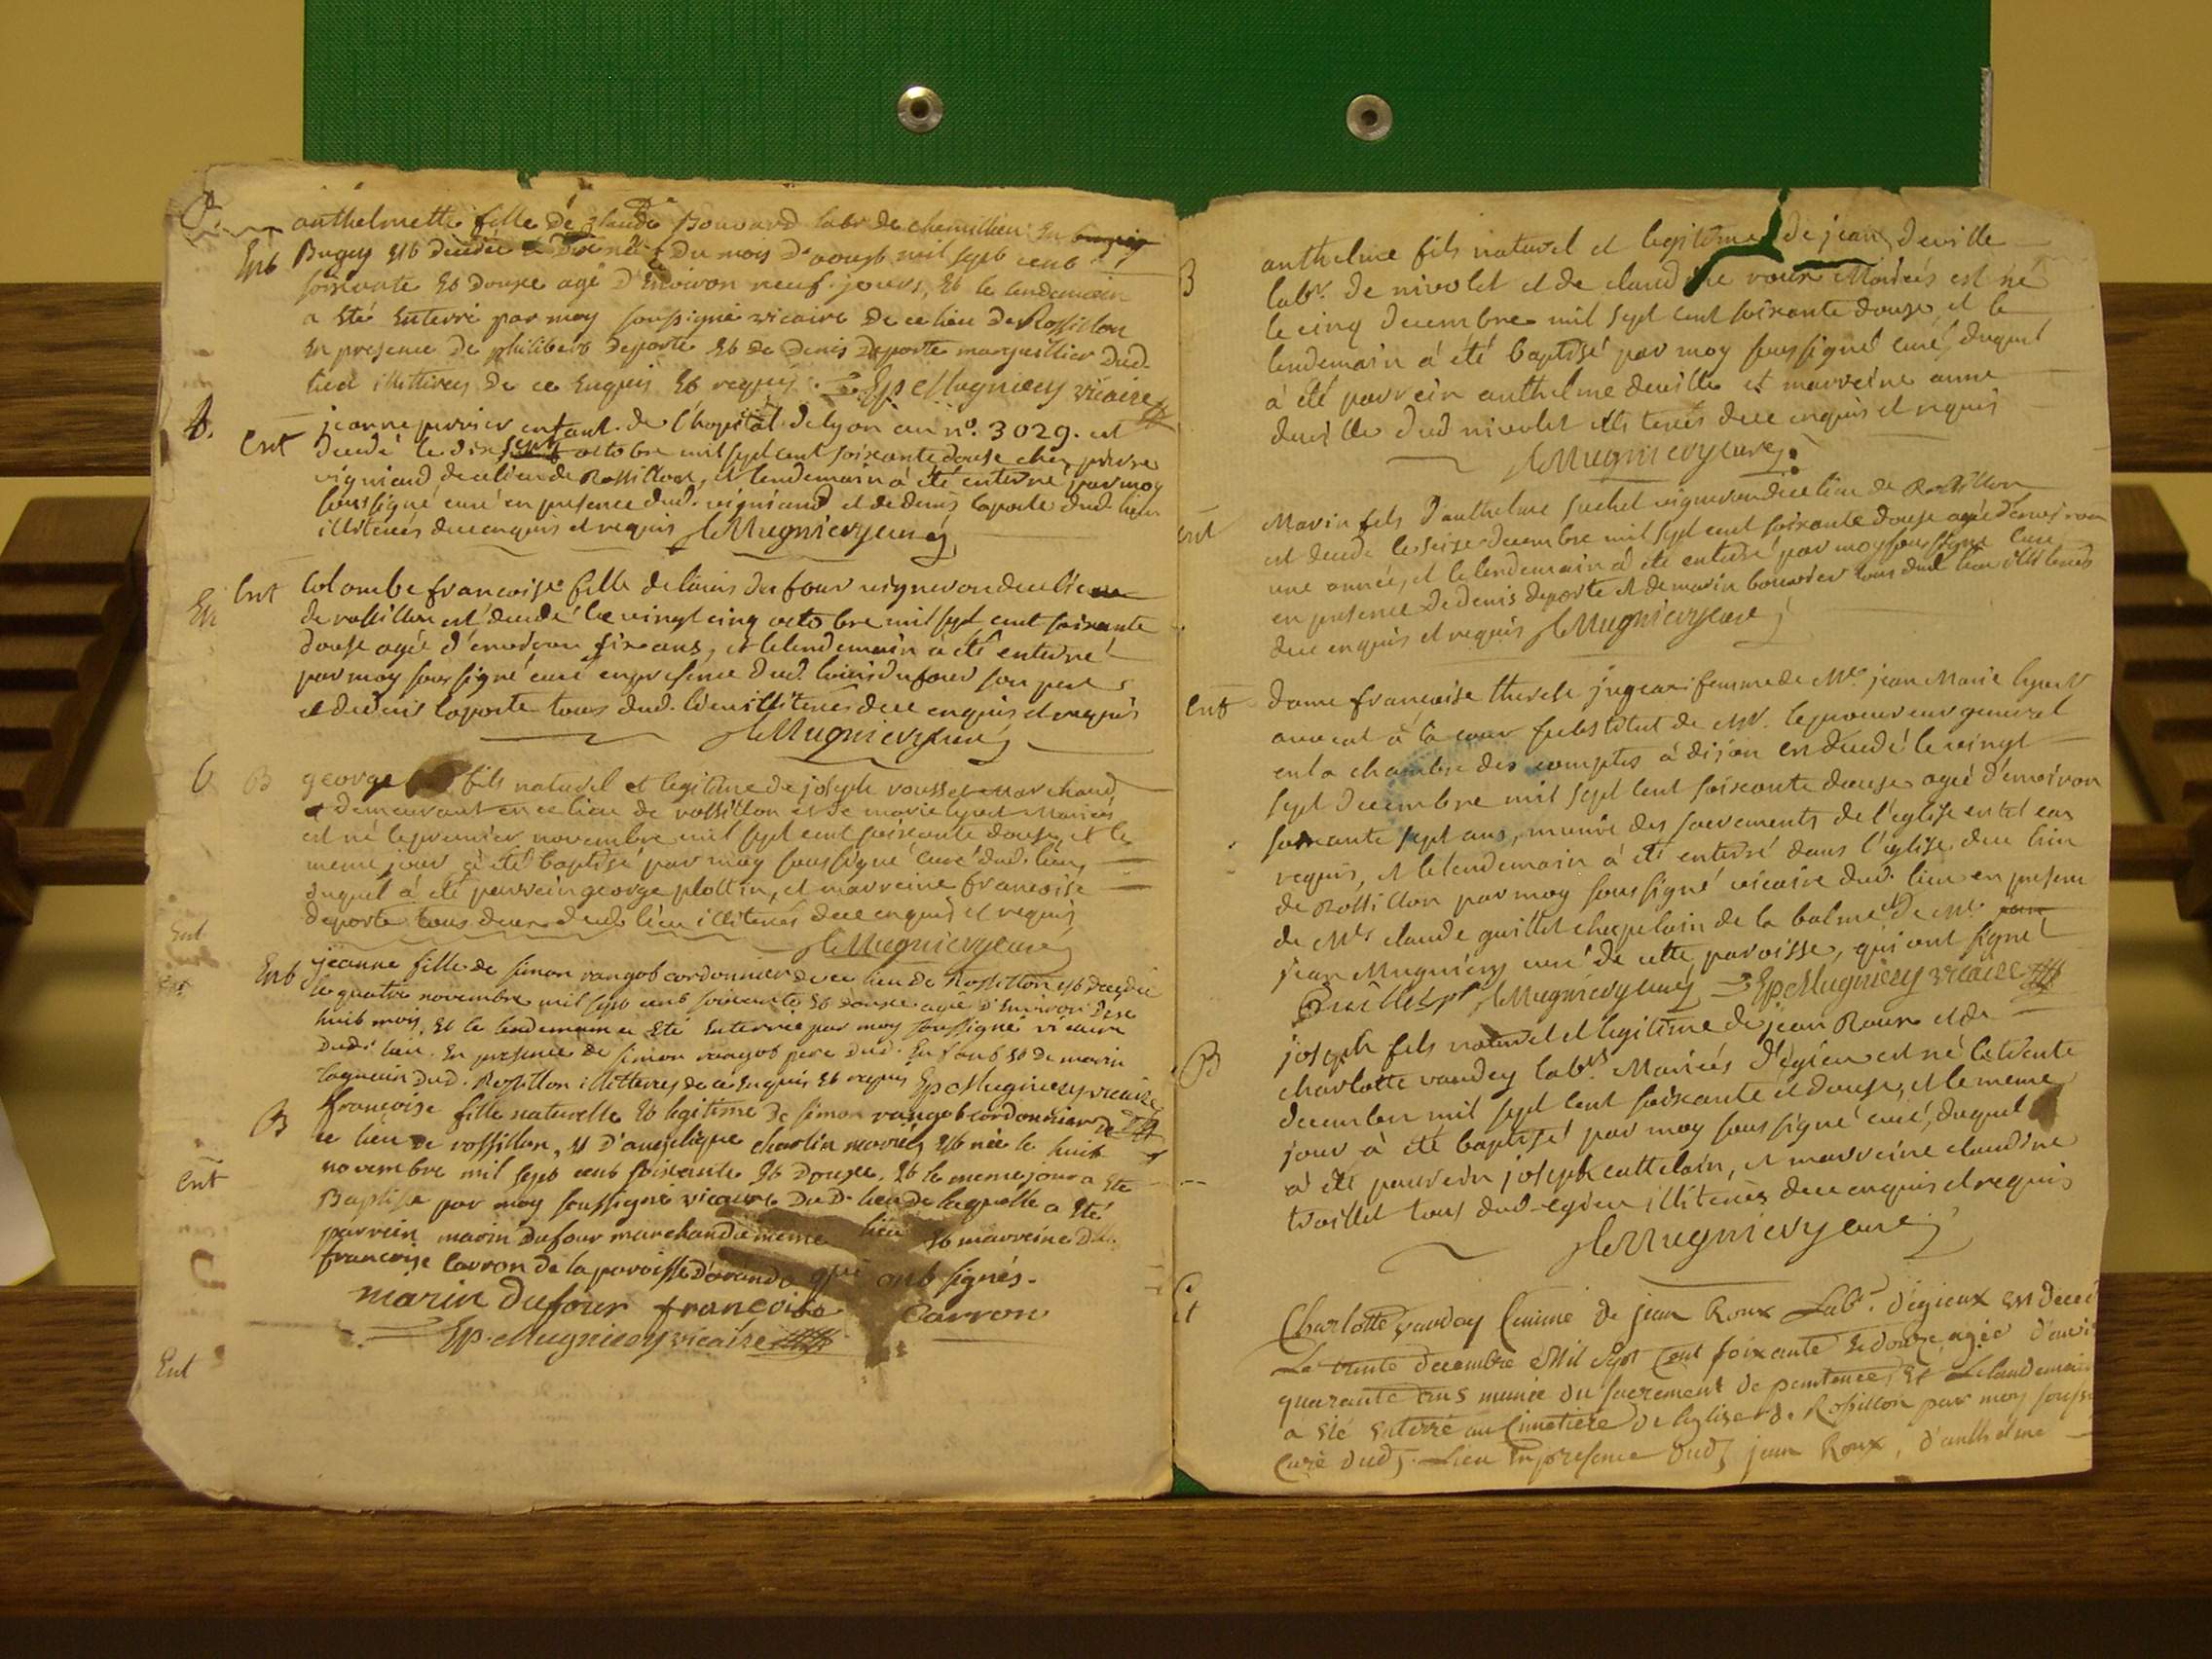 anthelmette fille de claude Bouvard labr de chemillieu en bugey
Ent Bugey est decedée le dixneuf du mois d'aougst mil sept cent
soixante et douze agé d'environ neuf jours, et le lendemain
a eté enterré par moy soussigné vicaire de ce lieu de Rossillon
en presence de philibert deporte et de denis deporte marguillier dud.
lieu illitterez de ce enquis et requis. Ep Mugniery vicaire
jeanne perrier enfant de l'hopital de lyon au n°. 3029. est
Ent decedé le dix sept octobre mil sept cent soixante douse chez pierre
vigniaud de ce lieu de Rossillon, et lendemain à été enterré par moy
soussigné curé en presence dud. vigniaud et de denis laporte dud. lieu
illiterés de ce enquis et requis JeMugniery curé
Ent Colombe francoise fille de louis dufour vigneron de ce lieu
de rossillon est decedé le vingt cinq octobre mil sept cent soixante
douse agée d'environ six ans, et le lendemain a été enterré
par moy sous signé curé en presence dud. louis dufour son pere
et de denis laporte tous dud. lieu illiterés de ce enquis et requis
JeMugniery curé
B george fils naturel et legitime de joseph rousset marchand
demeurant en ce lieu de rossillon et de marie lyvet Mariés
est né le premier novembre mil sept cent soixante douse, et le
meme jour à été baptisé par moy soussigné curé dud. lieu,
duquel à été parrein george plottin, et marreine francoise
deporte tous deux dud. lieu illiterés de ce enquis et requis
JeMugniery curé
Ent jeanne fille de simon rangot cordonnier de ce lieu de Rossillon est decedée
le quatre novembre mil sept cent soixante et douze agée d'environ dix
huit mois, et le lendemain a eté enterrée par moy soussigné vicaire
dudt lieu. En presence de simon rangot pere dud. Enfant et de marin
dud. Rossillon illitterez de ce enquis et requis Ep Mugniery vicaire
B francoise fille naturelle et legitime de simon rangot cordonnier de
ce lieu de rossillon, et d'angelique charlin mariés, est née le huit
novembre mil sept cent soixante et douze, et le meme jour a eté
Baptisée par moy soussigné vicaire dudt lieu de laquelle a eté
parrein marin dufour marchand du meme lieu et marreine dlle.
francoise Carron de la paroisse d'arandas qui ont signés.
marin dufour francoise Carron
Ep. Mugniery vicaire
B anthelme fils naturel et legitime de jean deville
labr. de nivolet et de claudine roux Mariés est né
le cinq decembre mil sept cent soixante douse, et le
lendemain à été baptisé par moy soussigné curé, duquel
à été parrein anthelme deville et marreine anne
deville dud nivolet illiterés de ce enquis et requis
JeMugniery curé
Ent Marin fils d'anthelme suchet vigneron de ce lieu de Rossillon
est decedé le seize decembre mil sept cent soixante douse agé d'environ
une année, et le lendemain à été enterré par moy soussigné curé
en presence de denis deporte et de marin bouvier tous dud lieu illiterés
de ce enquis et requis JeMugniery curé
Ent dame francoise therese femme de Mr. jean Marie lyvet
avocat à la cour substitut de Mr. le procureur general
en la chambre des comptes à dijon est decedé le vingt
sept decembre mil sept cent soixante douse agée d'environ
soixante sept ans, munie des sacrements de l'eglise en tel cas
requis, et le lendemain à été enterré dans l'eglise de ce lieu
de Rossillon par moy soussigné vicaire dud. lieu en presence
de Mrs claude guillet chapelain de la balme et de Mr.
jean Mugniery curé de cette paroisse, qui ont signé
Guillet ptre JeMugniery curé Ep Mugniery vicaire
B joseph fils naturel et legitime de jean Roux et de
charlotte vauday labrs. Mariés d'egieu est né le trente
decembre mil sept cent soixante et douse, et le meme
jour à été baptisé par moy soussigné curé, duquel
à été parrein joseph cattelain, et marreine claudine
traillet tous dud egieu illiterés de ce enquis et requis
JeMugniery curé
Charlotte vauday femme de jean Roux Labr. d'egieux est decedé
Le trente decembre Mil sept Cent soixante et douze, agée d'envi
quarante ans munie du sacrement de penitence, et Le landemain
a eté enterré au Cimetiere de l'eglise de Rossillon par moy souss
Curé dud. Lieu En presence dud. jean Roux, d'anthelme